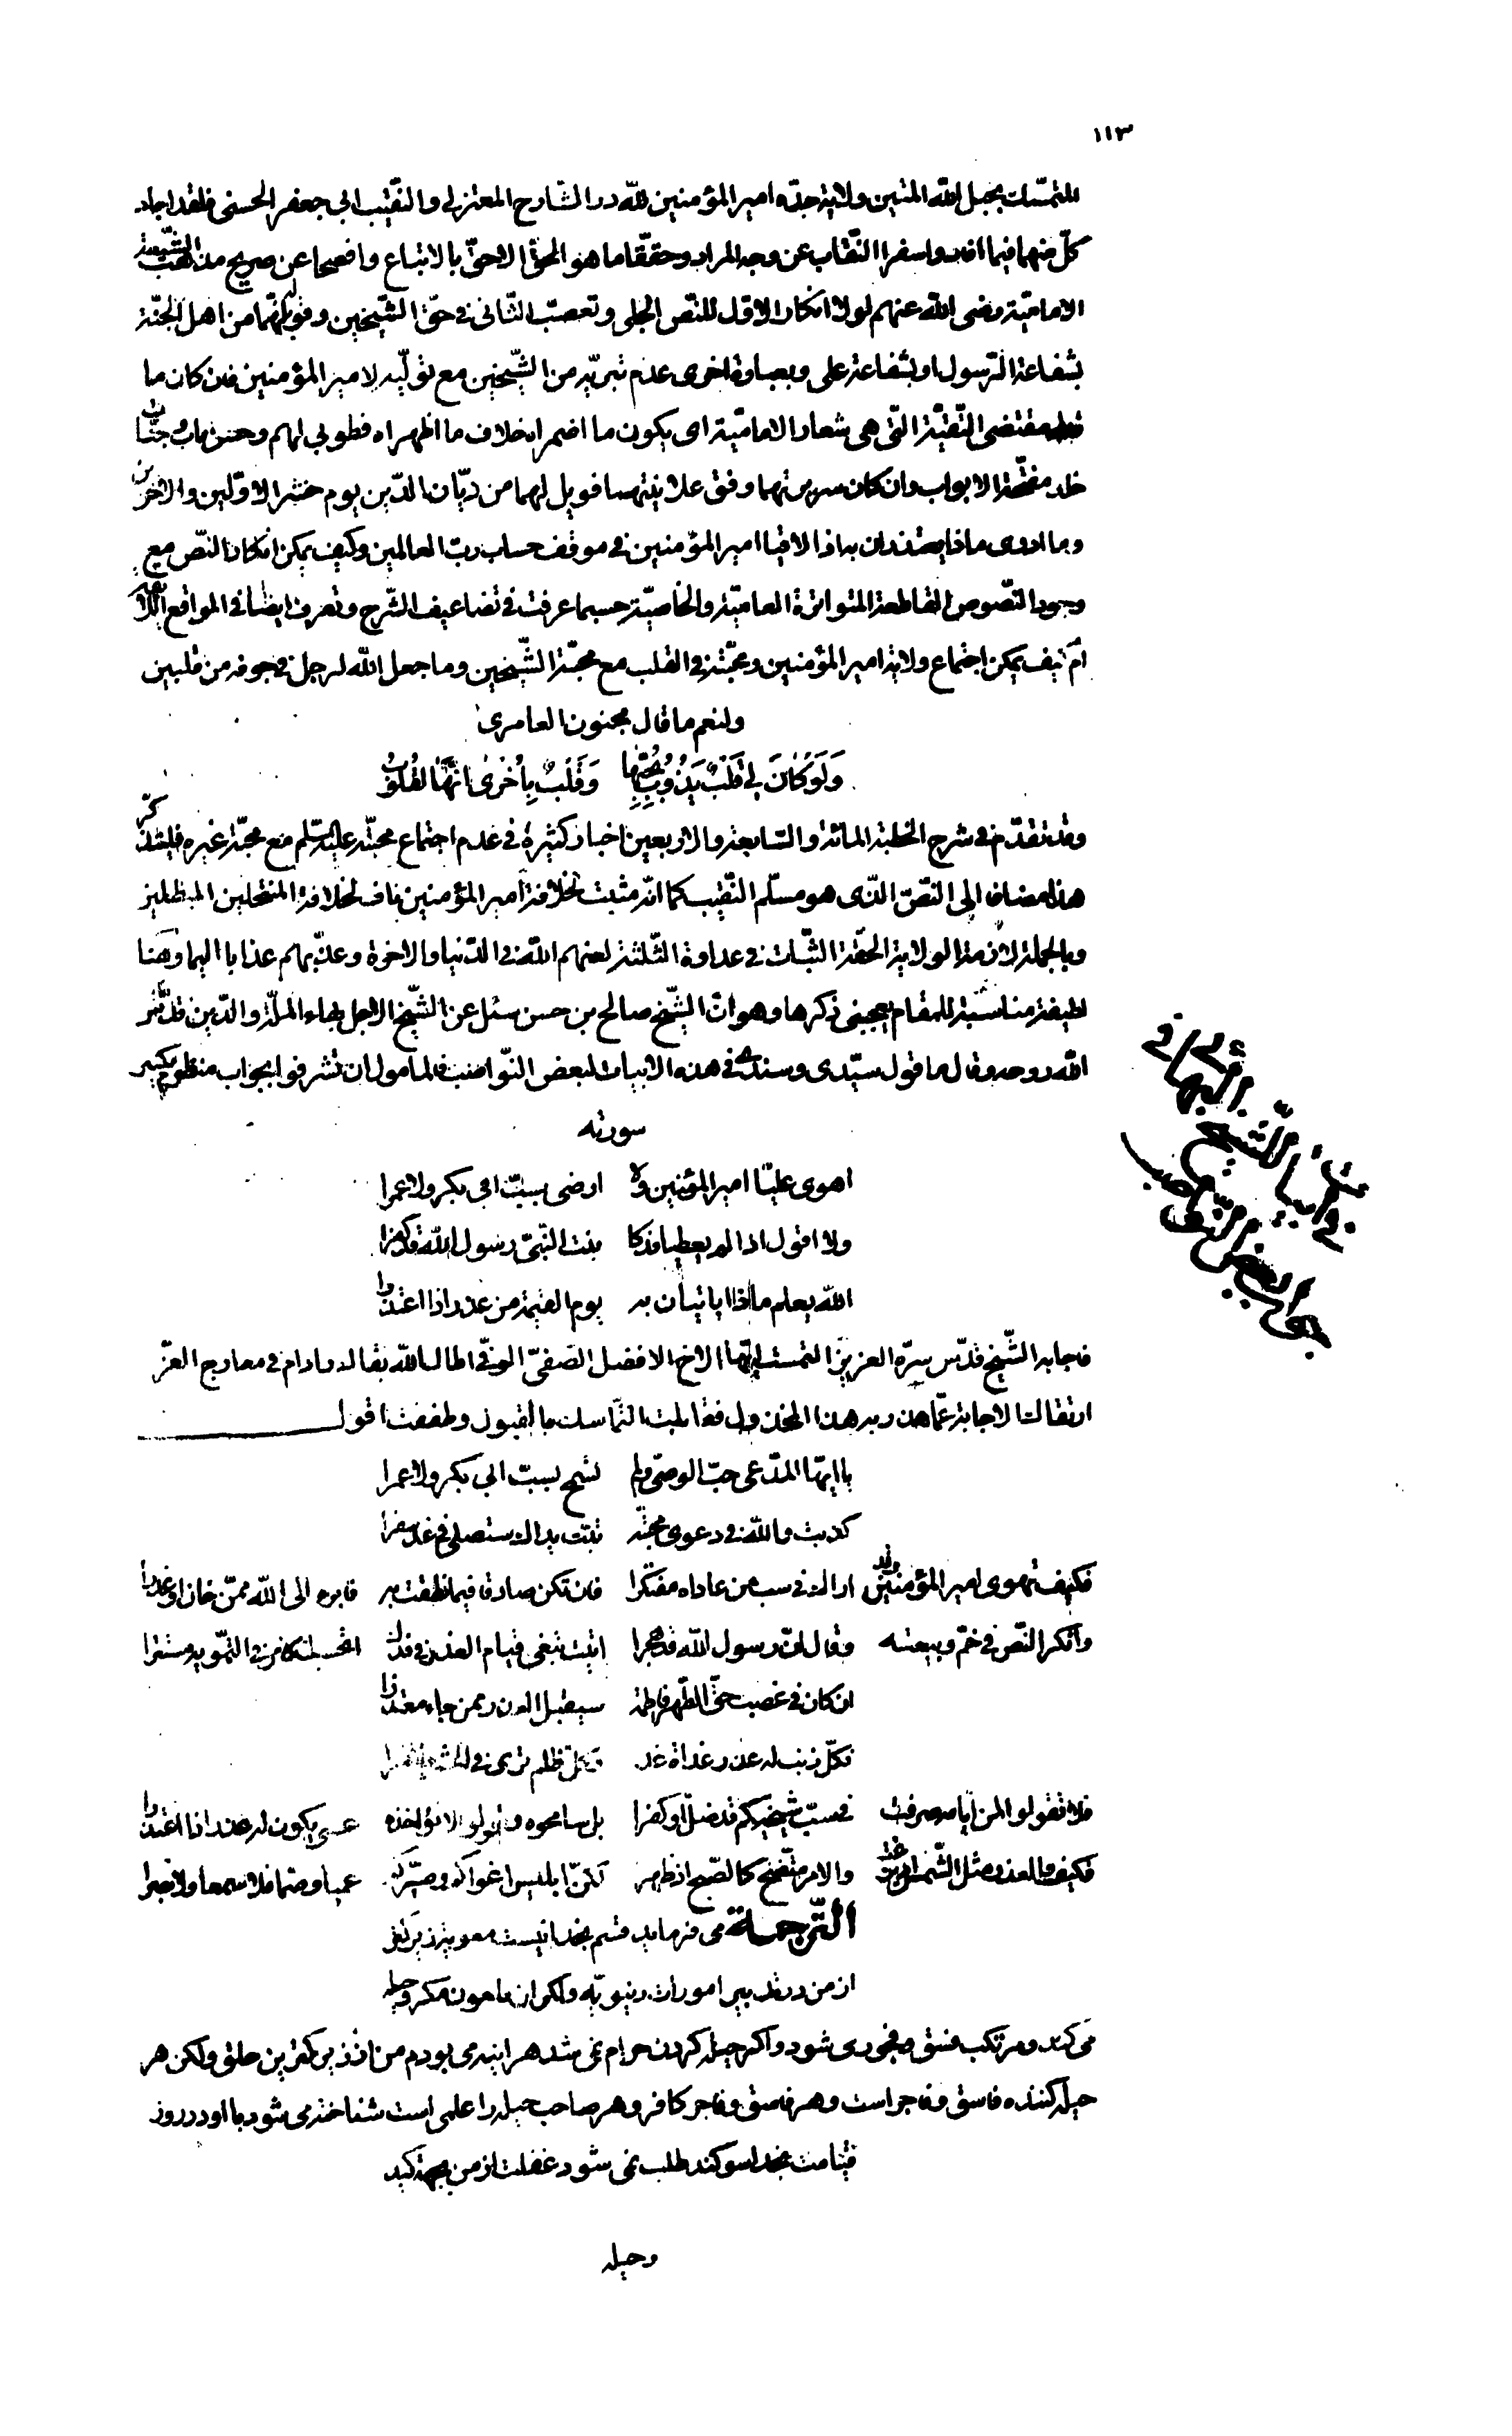 ١١٣
للتمسّك بحبل اللّه المتين ولاية جدّه امير المؤمنين للّه درّ الشارح المعتزلى والنّقيب ابى جعفر الحسنى فلقد اجاد
كلّ منهما فيما افاد واسفرا النّقاب عن وجه المراد وحقّقا ما هو الحقّ الاحقّ بالاتباع وافصحا عن صريح مذهب الشّيعة
الاماميّة رضى اللّه عنهم لولا انكار الاوّل للنّص الجلى وتعصّب الثّانى فى حقّ الشّيخين وقوله بانّهما من اهل الجنّة
بشفاعة الرّسول او بشفاعة على وبعبارة اخرى عدم تبرّيه من الشّيخين مع تولّيه لامير المؤمنين فان كان ما
مقتضى التّقيّة الّتى هى شعار الاماميّة اى يكون ما اضمراه خلاف ما اظهراه فطوبى لهم وحسن مآب وجنّات
خلد مفتّحة الابواب وان كان سريرتهما وفق علانيتهما فويل لهما من ديّان الدّين يوم حشر الاوّلين والآخرين
وما ادرى ماذا يعتذران به اذا لاقيا امير المؤمنين فى موقف حساب ربّ العالمين وكيف يمكن انكار النّص مع
وجود النّصوص القاطعة المتواترة العاميّة والخاصيّة حسبما عرفت فى تضاعيف الشّرح وتعرف ايضا فى المواقع اللّايقة
ام كيف يمكن اجتماع ولاية امير المؤمنين ومحبّته فى القلب مع محبّة الشّيخين وما جعل اللّه لرجل فى جوفه من قلبين
ولنعم ما قال مجنون العامرى
وَلَوْ كَانَ لِى قَلْبٌ يَذُوبُ بِحُبِّهَا وَقَلْبٌ بِاُخْرَى انَّهَا لَقُلُوبُ
وقد تقدّم فى شرح الخطبة المائة والسّابعة والاربعين اخبار كثيرة فى عدم اجتماع محبّته عليه السّلم مع محبّة غيره فليتذكّر
هذا مضافا الى النّصّ الّذى هو مسلّم النّقيب كما انّه مثبت لخلافة امير المؤمنين ناف لخلافة المنتحلين المبطلين
وبالجملة لازمة الولاية الحقّة الثّبات فى عداوة الثّلثة لعنهم اللّه فى الدّنيا والاخرة وعذّبهم عذابا اليما وهنا
لطيفة مناسبة للمقام يعجبنى ذكرها وهو انّ الشّيخ صالح بن حسن سئل عن الشّيخ الاجل بهاء الملّة والدّين قدّس
اللّه روحه وقال ما قول سيّدى وسندى فى هذه الابيات لبعض النّواصب فالمأمول ان تشرفوا بجواب منظوم يكسر
سورته
اهوى عليّا امير المؤمنين ولا ارضى بسبّ ابى بكر ولا عمرا
ولا اقول اذا لم يعطيا فدكا بنت النّبىّ رسول اللّه قد كفرا
اللّه يعلم ماذا ياتيان به يوم القيمة من عذر اذا اعتذرا
فاجابه الشّيخ قدّس سرّه العزيز التمست ايّها الاخ الافضل الصّفىّ الوفىّ اطال اللّه بقاك وادام فى معارج العزّ
ارتقاك الاجابة عمّا هذر به هذا المخذول فقابلت التماسك بالقبول وطفقت اقول
يا ايّها المدّعى حبّ الوصىّ ولم تسمح بسبّ ابى بكر ولا عمرا
كذبت واللّه فى دعوى محبّته تبّت يداك ستصلى فى غد سقرا
فكيف تهوى امير المؤمنين وقد اراك فى سب من عاداه مفتكرا فان تكن صادقا فيما نطقت به فابرء الى اللّه ممّن خان او غدرا
وانكر النّص فى خمّ وبيعته وقال انّ رسول اللّه قد هجرا اتيت تبغى قيام العذر فى فدك اتحسب الامر فى التّمويه مستترا
ان كان فى غصب حقّ الطّهر فاطمة سيقبل العذر ممّن جاء معتذرا
فكلّ ذنب له عذر غداة غد وكلّ ظلم ترى فى الحشر مغتفرا
فلا تقولوا لمن ايّامه صرفت فى سبّ شيخيكم قد ضلّ او كفرا بل سامحوه وقولوا لا نؤاخذه عسى يكون له عذر اذا اعتذرا
فكيف والعذر مثل الشّمس اذ بزغت والامر متّضح كالصّبح اذ ظهر لكنّ ابليس اغواكم وصيّركم عميا وصمّا فلا سمعا ولا بصرا
التّرجمة مى فرمايد قسم بخدا نيست معويه زيركتر
از من در تدبير امورات دنيويّه ولكن آن ملعون مكر وحيله
مى كند ومرتكب فسق وفجور مى شود واگر حيله كردن حرام نمى شد هر آينه مى بودم من از زيركترين خلق ولكن هر
حيله كننده فاسق وفاجر است وهر فاسق وفاجر كافر وهر صاحب حيله را علمى است شناخته مى شود با او در روز
قيامت بخدا سوگند طلب نمى شود غفلت از من بجهة كيد
وحيله
فى ابيات الشّيخ البهائى
جواب بعض النّواصب